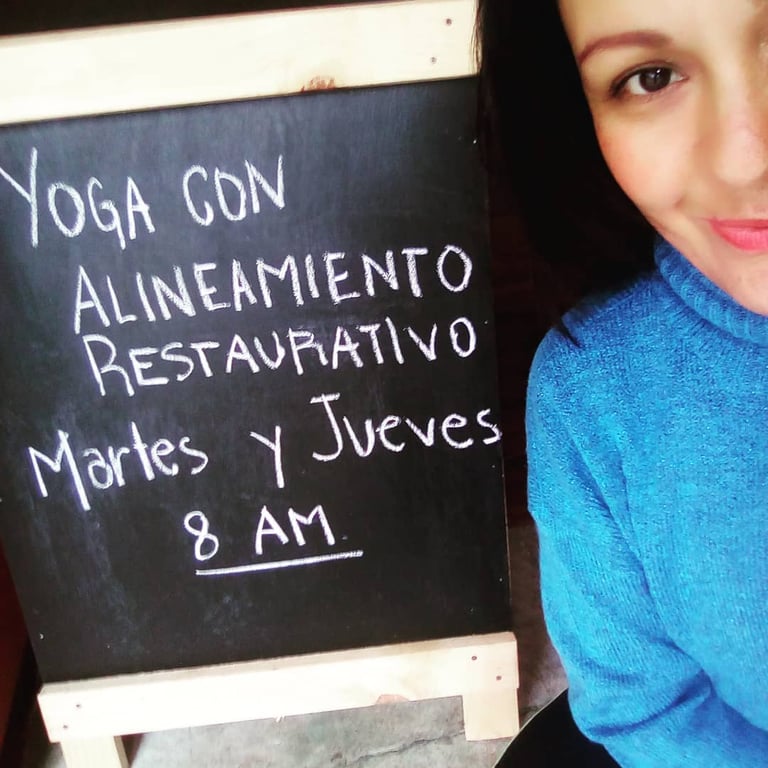 YOGA CON
ALINEAMIENTO
RESTAURATIVO
Martes y Jueves
8 AM